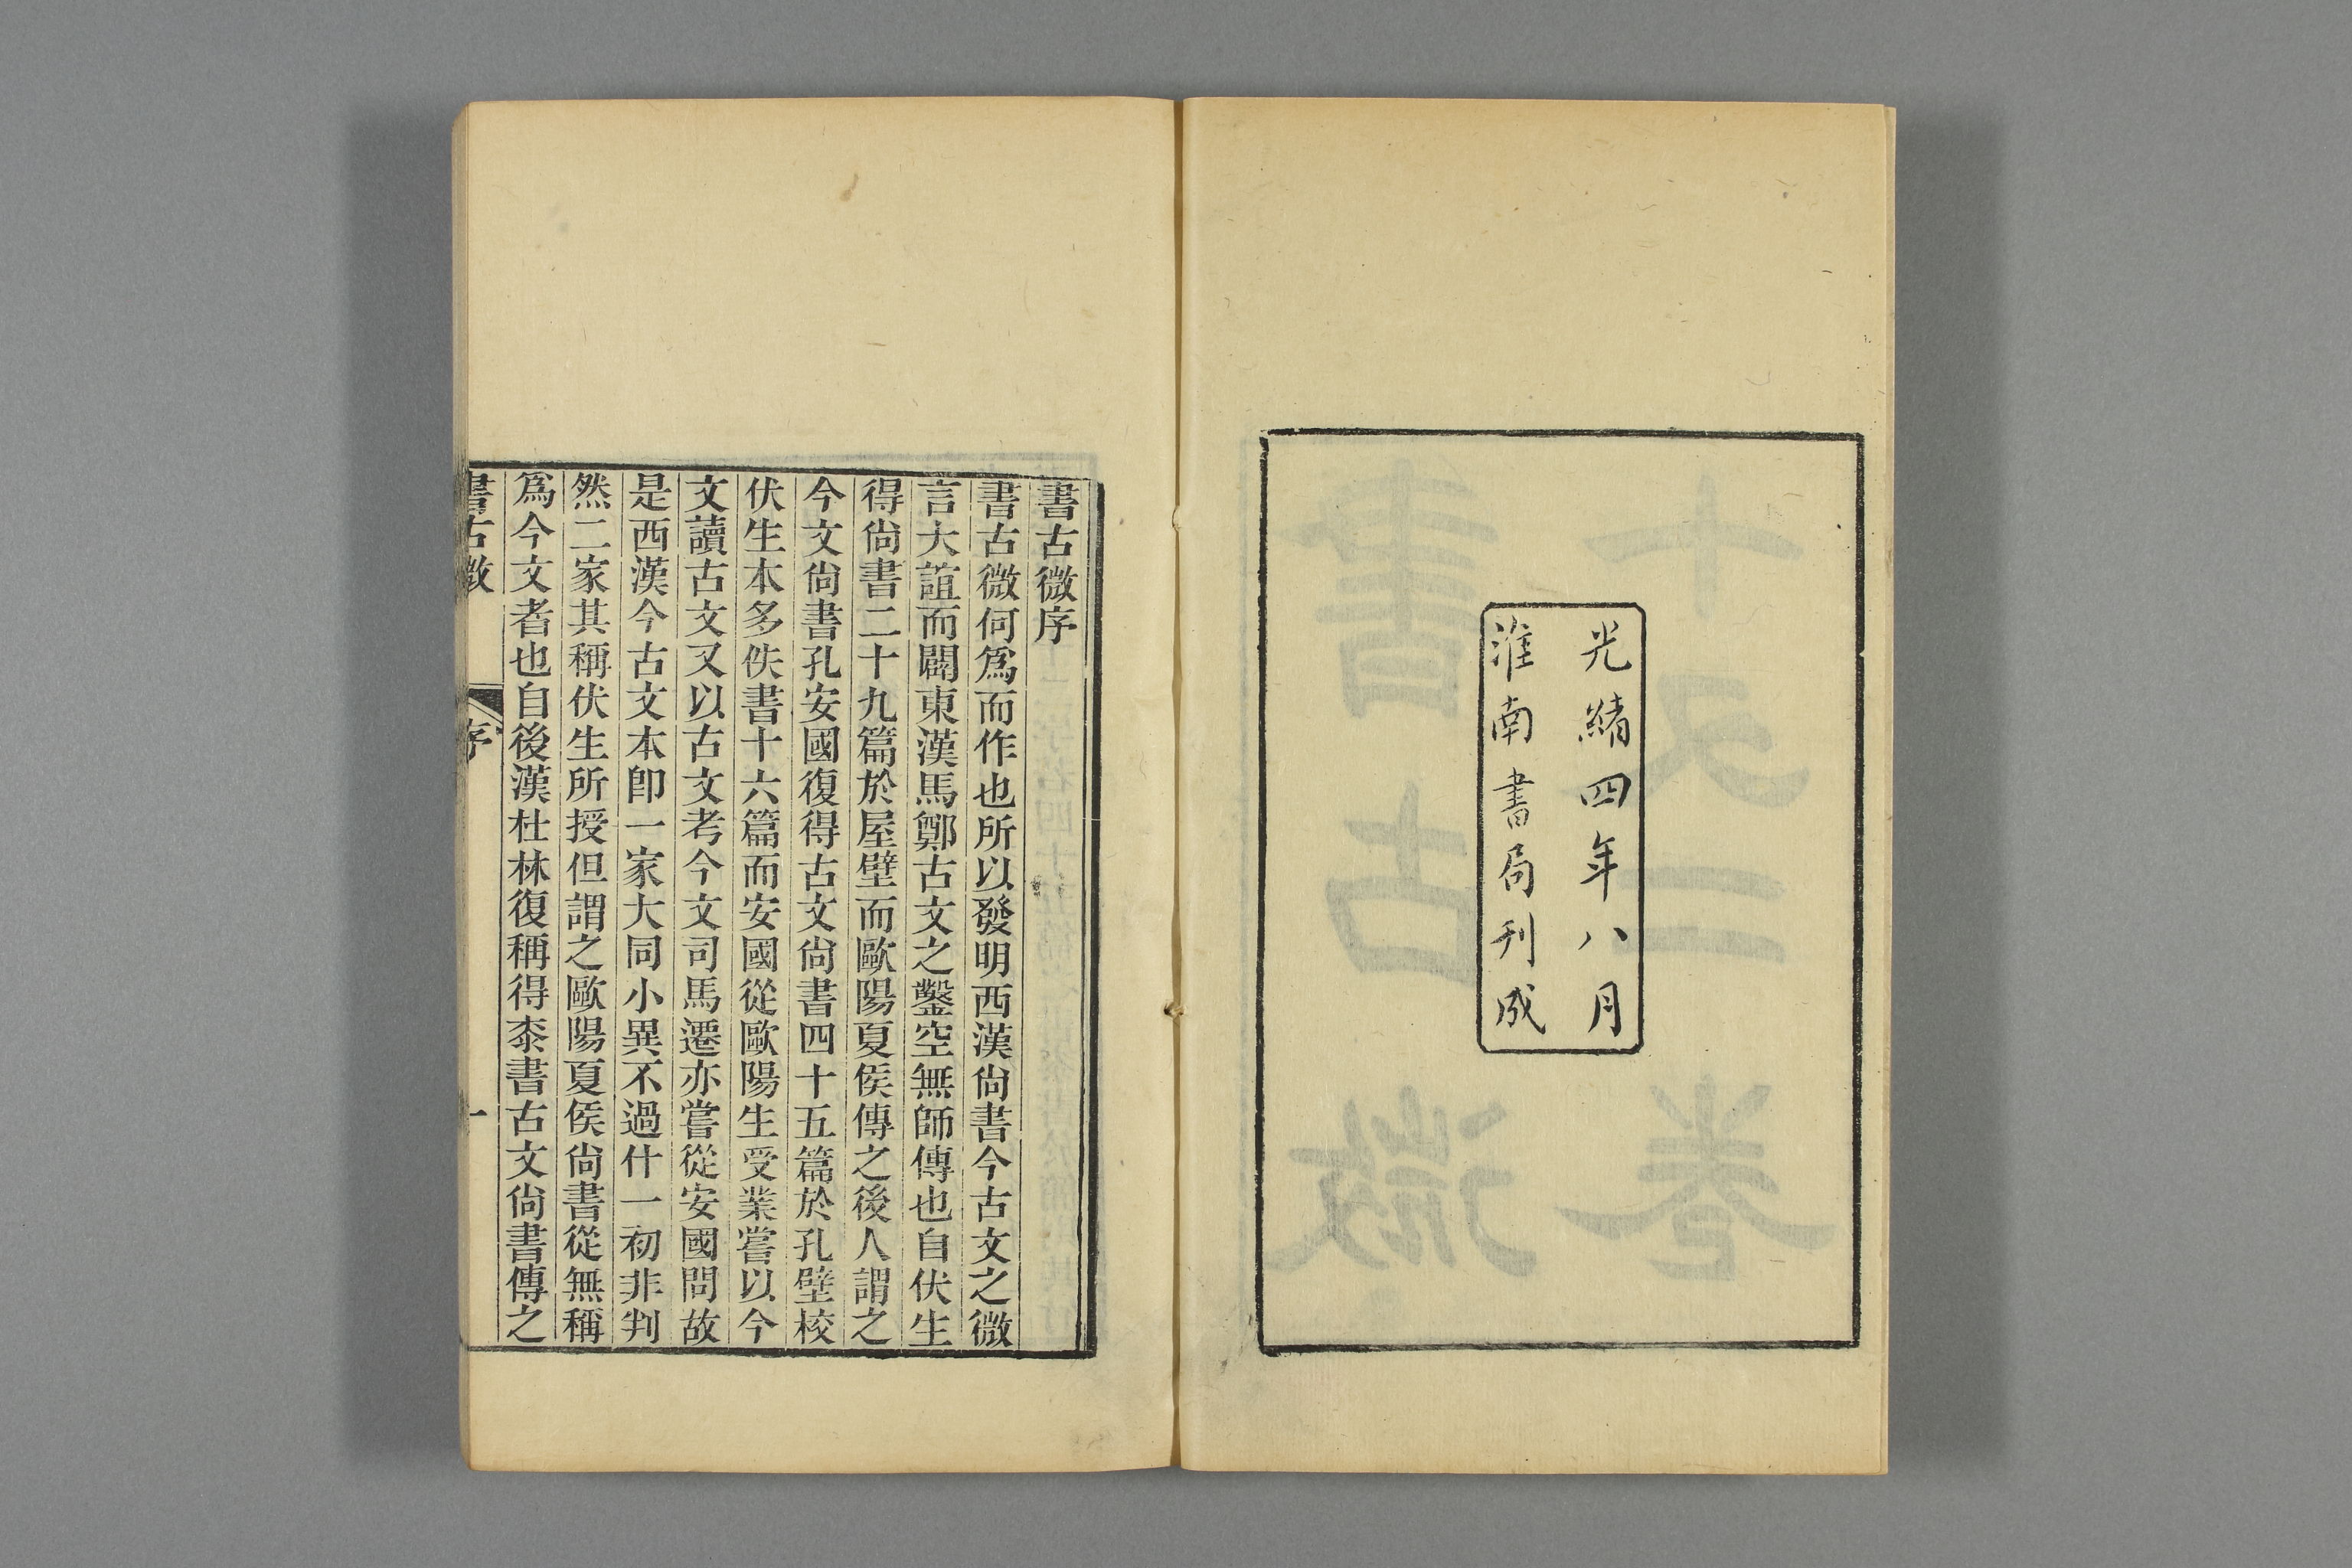 光緒四年八月
淮南書局刊成
書古微序
書古微何爲而作也所以發明西漢尙書今古文之微
言大誼而闢東漢馬鄭古文之鑿空無師傳也自伏生
得尙書二十九篇於屋壁而歐陽夏侯傳之後人謂之
今文尙書孔安國復得古文尙書四十五篇於孔壁校
伏生本多佚書十六篇而安國從歐陽生受業嘗以今
文讀古文又以古文考今文司馬遷亦嘗從安國問故
是西漢今古文本卽一家大同小異不過什一初非判
然二家其稱伏生所授但謂之歐陽夏侯尙書從無稱
爲今文者也自後漢杜林復稱得桼書古文尙書傳之
書古微
序
一